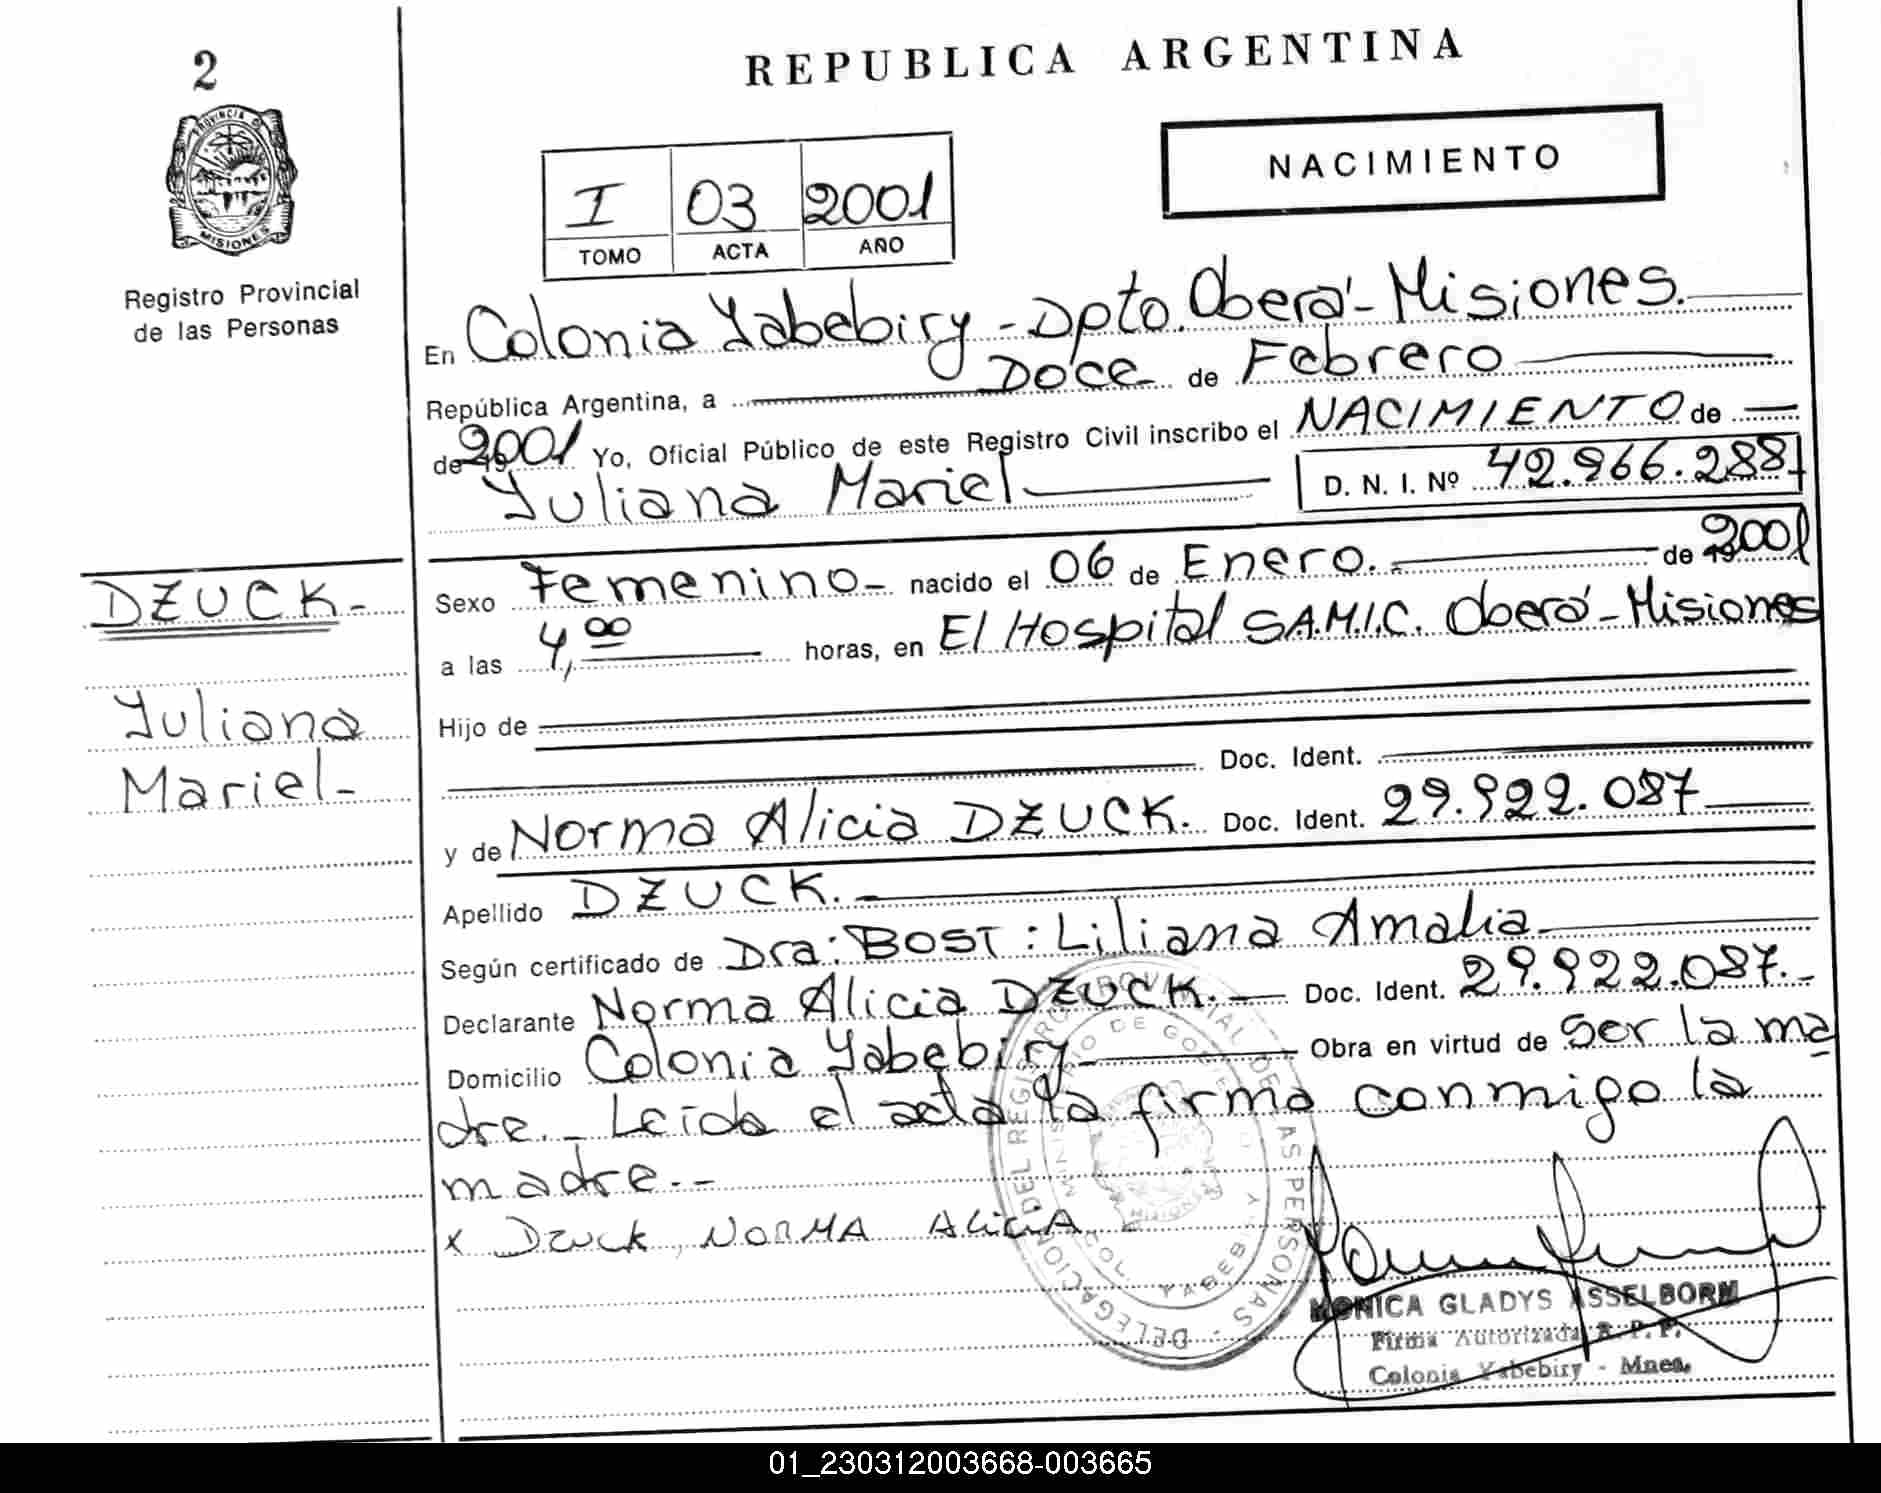 2
PROVINCIA DE
MISIONES
Registro Provincial
de las Personas
DZUCK.-
Yuliana
Mariel.-
REPUBLICA ARGENTINA
NACIMIENTO
I 03 2001
TOMO ACTA AÑO
En Colonia Yabebiry - Dpto. Oberá - Misiones.
República Argentina, a Doce de Febrero
de 2001 Yo, Oficial Público de este Registro Civil inscribo el NACIMIENTO de
Yuliana Mariel D. N. I. Nº 42.966.288
Sexo Femenino- nacido el 06 de Enero. de 2001
a las 4,00 horas, en El Hospital S.A.M.I.C. Oberá - Misiones
Hijo de
Doc. Ident.
y de Norma Alicia DZUCK. Doc. Ident. 29.922.087
Apellido DZUCK.-
Según certificado de Dra: BOST: Liliana Amalia
Declarante Norma Alicia DZUCK.- Doc. Ident. 29.922.087.-
Domicilio Colonia Yabebiry Obra en virtud de ser la ma
dre.- Leida el acta la firma conmigo la
madre.--
x Dzuck, NORMA ALiciA
DELEGACION DEL REGISTRO PROVINCIAL DE LAS PERSONAS -
MINISTERIO DE GOBIERNO Y
COL. YABEBIRY
MISIONES
MONICA GLADYS ASSELBORM
Firma Autorizada R. P. P.
Colonia Yabebiry - Mnes.
01_230312003668-003665